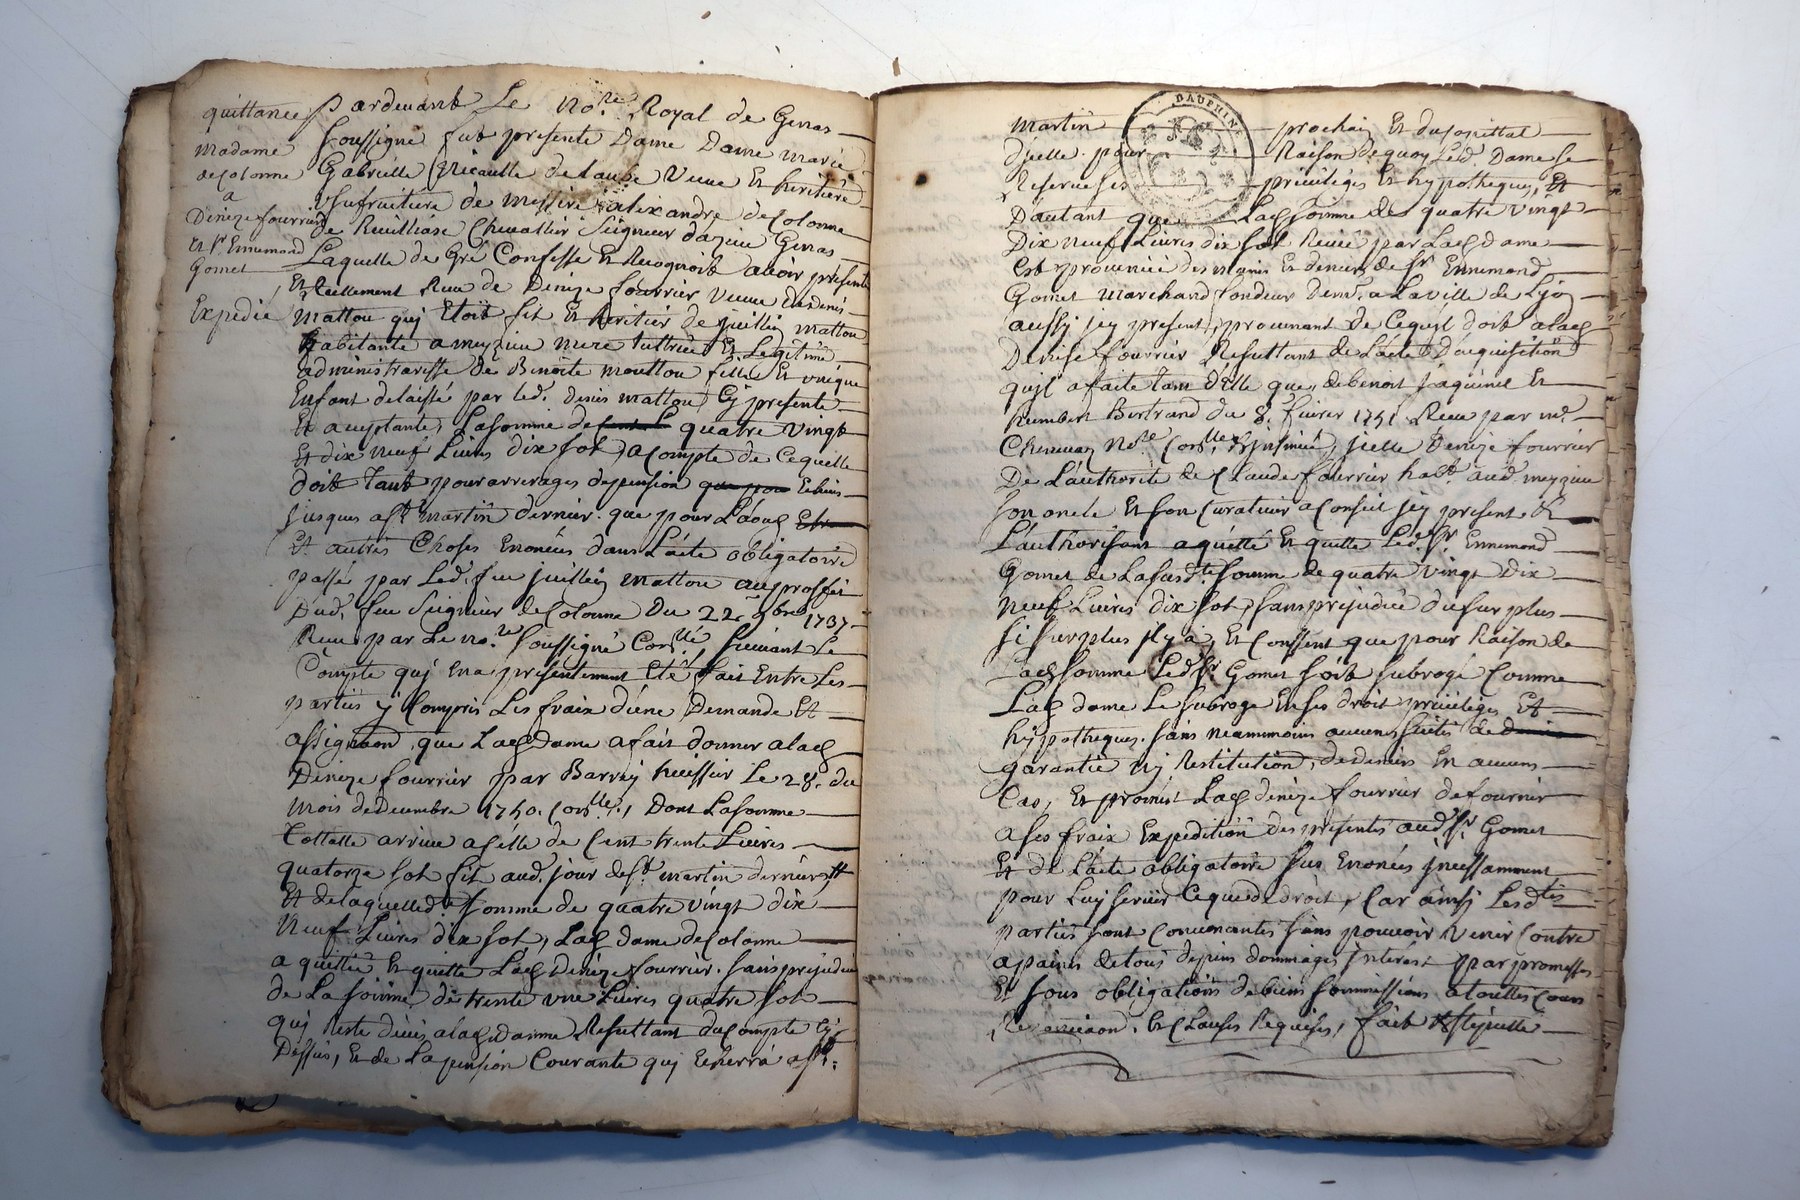 quittance
Madame
de Colonne
a
Denize fourrier
et Sr. Ennemond
Gomet
Expedié
Pardevant Le no.re Royal de Genas
soussigné fut presente Dame Dame Marie
Gabrielle de Veuve et heritiere
usufruitiere de Messire alixandre de Colonne
de Chevallier Seigneur Genas
Laquelle de Gré Confesse et Recognoit avoir presente
et Reellement Reçu de Denize fourrier Veuve de denis
Mattou quj Etoit fils et heritier de juillin Mattou
habitante a meyzieu mere tuttrice et Legitime
administraresse de Benoite mouttou fille et unique
Enfant delaissé par led. denis mattou Cy presente
Et aceptante, La somme de quatre vingt
Et dix neuf Livres dix sols, a Compte de Cequelle
doit Tant pour arrerages de pension Echeus
jusques a St. Martin dernier. que pour
Et autres Choses Enoncées dans L'acte obligatoire
passé par Led. feu juillin mattou au proffit
Dud. feu Seigneur de Colonne Du 22e 9bre 1737
Reçu par Le no.re soussigné Con.llé, suivant Le
Compte quj Ena presentement Eté fait Entre Les
parties y Compris Les fraix d'une Demande Et
assignaon que Lad. dame a fait donner a lad.
Denize fourrier par Barrey huissier Le 28. du
mois de Decembre 1750. Con.llé, Dont La somme
Tottalle arrive a Celle de Cent trente Livres
quatorze sols sit aud. jour de St. martin dernier,
Et de laquelle d.e somme de quatre vingt dix
Neuf Livres dix sols, Lad. dame de Colonne
a quitté et quitte Lad. Denize fourrier. sans prejudice
de La somme de trente une Livres quatre sols
quj Reste deües a lad. dame Resultant du Compte Cy
Dessus, Et de La pension Courante quj Echerra a St.
DAUPHINE
Martin prochain Et
D'jcelle. pour Raison de quoy Led. Dame se
Reserve ses privileges Et hypotheques, Et
D'autant que Lad. somme de quatre vingt
Dix neuf Livres dix sols Reçüe par Lad. dame
Est provenüe des mains Et deniers de Sr. Ennemond
Gomet Marchand fondeur Dem.t a La ville de Lyon
aussy jcy present, provenant de Cequil doit a lad.
Denise fourrier Resultant de L'acte D'acquisition
quil a faite tant d'Elle que de benoit jaquinet Et
humbert Bertrand du 8. fevrier 1751 Reçu par me.
Chesnay No.re Con.llé & insinué, jcelle Denize fourrier
De L'authorité de Claude fourrier hab.t aud. meyzieu
son oncle Et son Curateur a Conseil jcy present &
L'authorisant a quitté Et quitte Led. Sr. Ennemond
Gomet de La susd.te somme de quatre vingt Dix
neuf Livres dix sols, sans prejudice du surplus
si surplus jl y a, Et Conssent que pour Raison de
Lad. somme Led. Sr. Gomet soit subrogé Comme
Lad. dame Le subroge En ses droit privileges Et
hypotheques. sans neammoins aucune suitte de
garantie nj Restitution de deniers En aucuns
Cas, Et promet Lad. denize fourrier de fournir
a ses fraix Expedition des presentes aud. Sr. Gomet
Et de L'acte obligatoire sus Enoncés jncessamment
pour Luy servir Ceque de droit, Car ainsj Lesd.tes
parties sont Convenantes sans pouvoir venir Contre
a paines de tous depens dommages jnterest par promesses
Et sous obligations de biens soumissions a touttes Cours
Renonciaon. Et Clauses Requises, fait